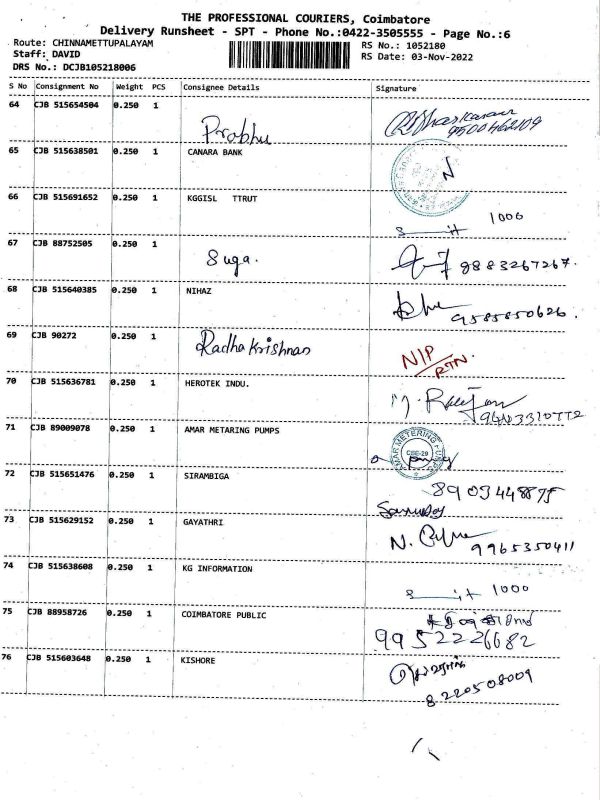 THE PROFESSIONAL COURIERS, Coimbatore
Delivery Runsheet - SPT - Phone No.:0422-3505555 - Page No.:6
Route: CHINNAMETTUPALAYAM RS No.: 1052180
Staff: DAVID RS Date: 03-Nov-2022
DRS No.: DCJB105218006
S No Consignment No Weight PCS Consignee Details Signature
64 CJB 515654504 0.250 1 Prabhu
9500462109
65 CJB 515638501 0.250 1 CANARA BANK
66 CJB 515691652 0.250 1 KGGISL TTRUT
1000
67 CJB 88752505 0.250 1 Suga. 9883267267.
68 CJB 515640385 0.250 1 NIHAZ
9585850626.
69 CJB 90272 0.250 1 Radha Krishnan N/P
RTN.
70 CJB 515636781 0.250 1 HEROTEK INDU.
71 CJB 89009078 0.250 1 AMAR METARING PUMPS AMAR METERING PUMPS
72 CJB 515651476 0.250 1 SIRAMBIGA
8903448875
73 CJB 515629152 0.250 1 GAYATHRI
9965350411
74 CJB 515638608 0.250 1 KG INFORMATION
1000
75 CJB 88958726 0.250 1 COIMBATORE PUBLIC
9952226682
76 CJB 515603648 0.250 1 KISHORE
8220508009